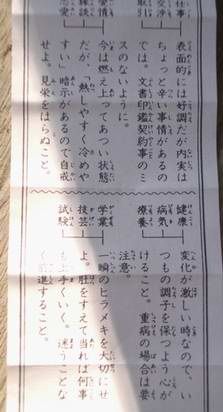 仕事
交渉
取引
表面的には好調だが内実は
ちょっと辛い事情があるの
では。文書印鑑契約事のミ
スのないように。
愛情
縁談
恋愛
今は燃え上ってあつい状態
だが、「熱しやすく冷めや
すい」暗示があるので自戒
せよ。見栄をはらぬこと。
健康
病気
療養
変化が激しい時なので、い
つもの調子を保つよう心が
けること。重病の場合は要
注意。
学業
技芸
試験
一瞬のヒラメキを大切にせ
よ。肚をすえて当れば何事
も上手くいく。迷うことな
く邁進すること。